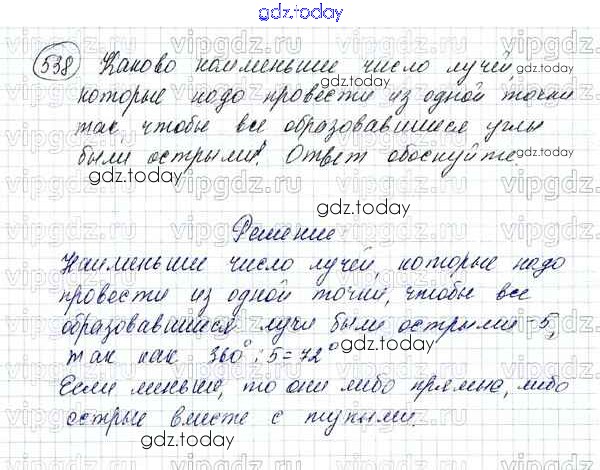 gdz.today
538 Каково наименьшее число лучей,
которые надо провести из одной точки
так, чтобы все образовавшиеся углы
были острыми? Ответ обоснуйте
Решение
Наименьшие число лучей, которые надо
провести из одной точки, чтобы все
образовавшиеся лучи были острыми - 5,
так как 360° : 5 = 72°
Если меньше, то они либо прямые, либо
острые вместе с тупыми.
gdz.today